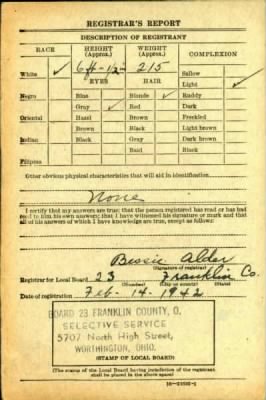 REGISTRAR'S REPORT
DESCRIPTION OF REGISTRANT
RACE HEIGHT (Approx.) WEIGHT (Approx.) COMPLEXION
White ✓ 6 ft - 1½" 215 Sallow
EYES HAIR Light ✓
Negro Blue Blonde ✓ Ruddy
Gray ✓ Red Dark
Oriental Hazel Brown Freckled
Brown Black Light brown
Indian Black Gray Dark brown
Bald Black
Filipino
Other obvious physical characteristics that will aid in identification
None
I certify that my answers are true; that the person registered has read or has had
read to him his own answers; that I have witnessed his signature or mark and that
all of his answers of which I have knowledge are true, except as follows:
Bessie Alder
(Signature of registrar)
Registrar for Local Board 23 Franklin Co.
(Number) (City or county)
Date of registration Feb. 14. 1942
BOARD 23 FRANKLIN COUNTY, O.
SELECTIVE SERVICE
5707 North High Street,
WORTHINGTON, OHIO.
(STAMP OF LOCAL BOARD)
(The stamp of the Local Board having jurisdiction of the registrant
shall be placed in the above space)